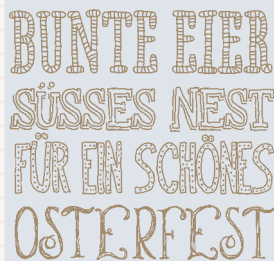 BUNTE EIER
SÜSSES NEST
FÜR EIN SCHÖNES
OSTERFEST